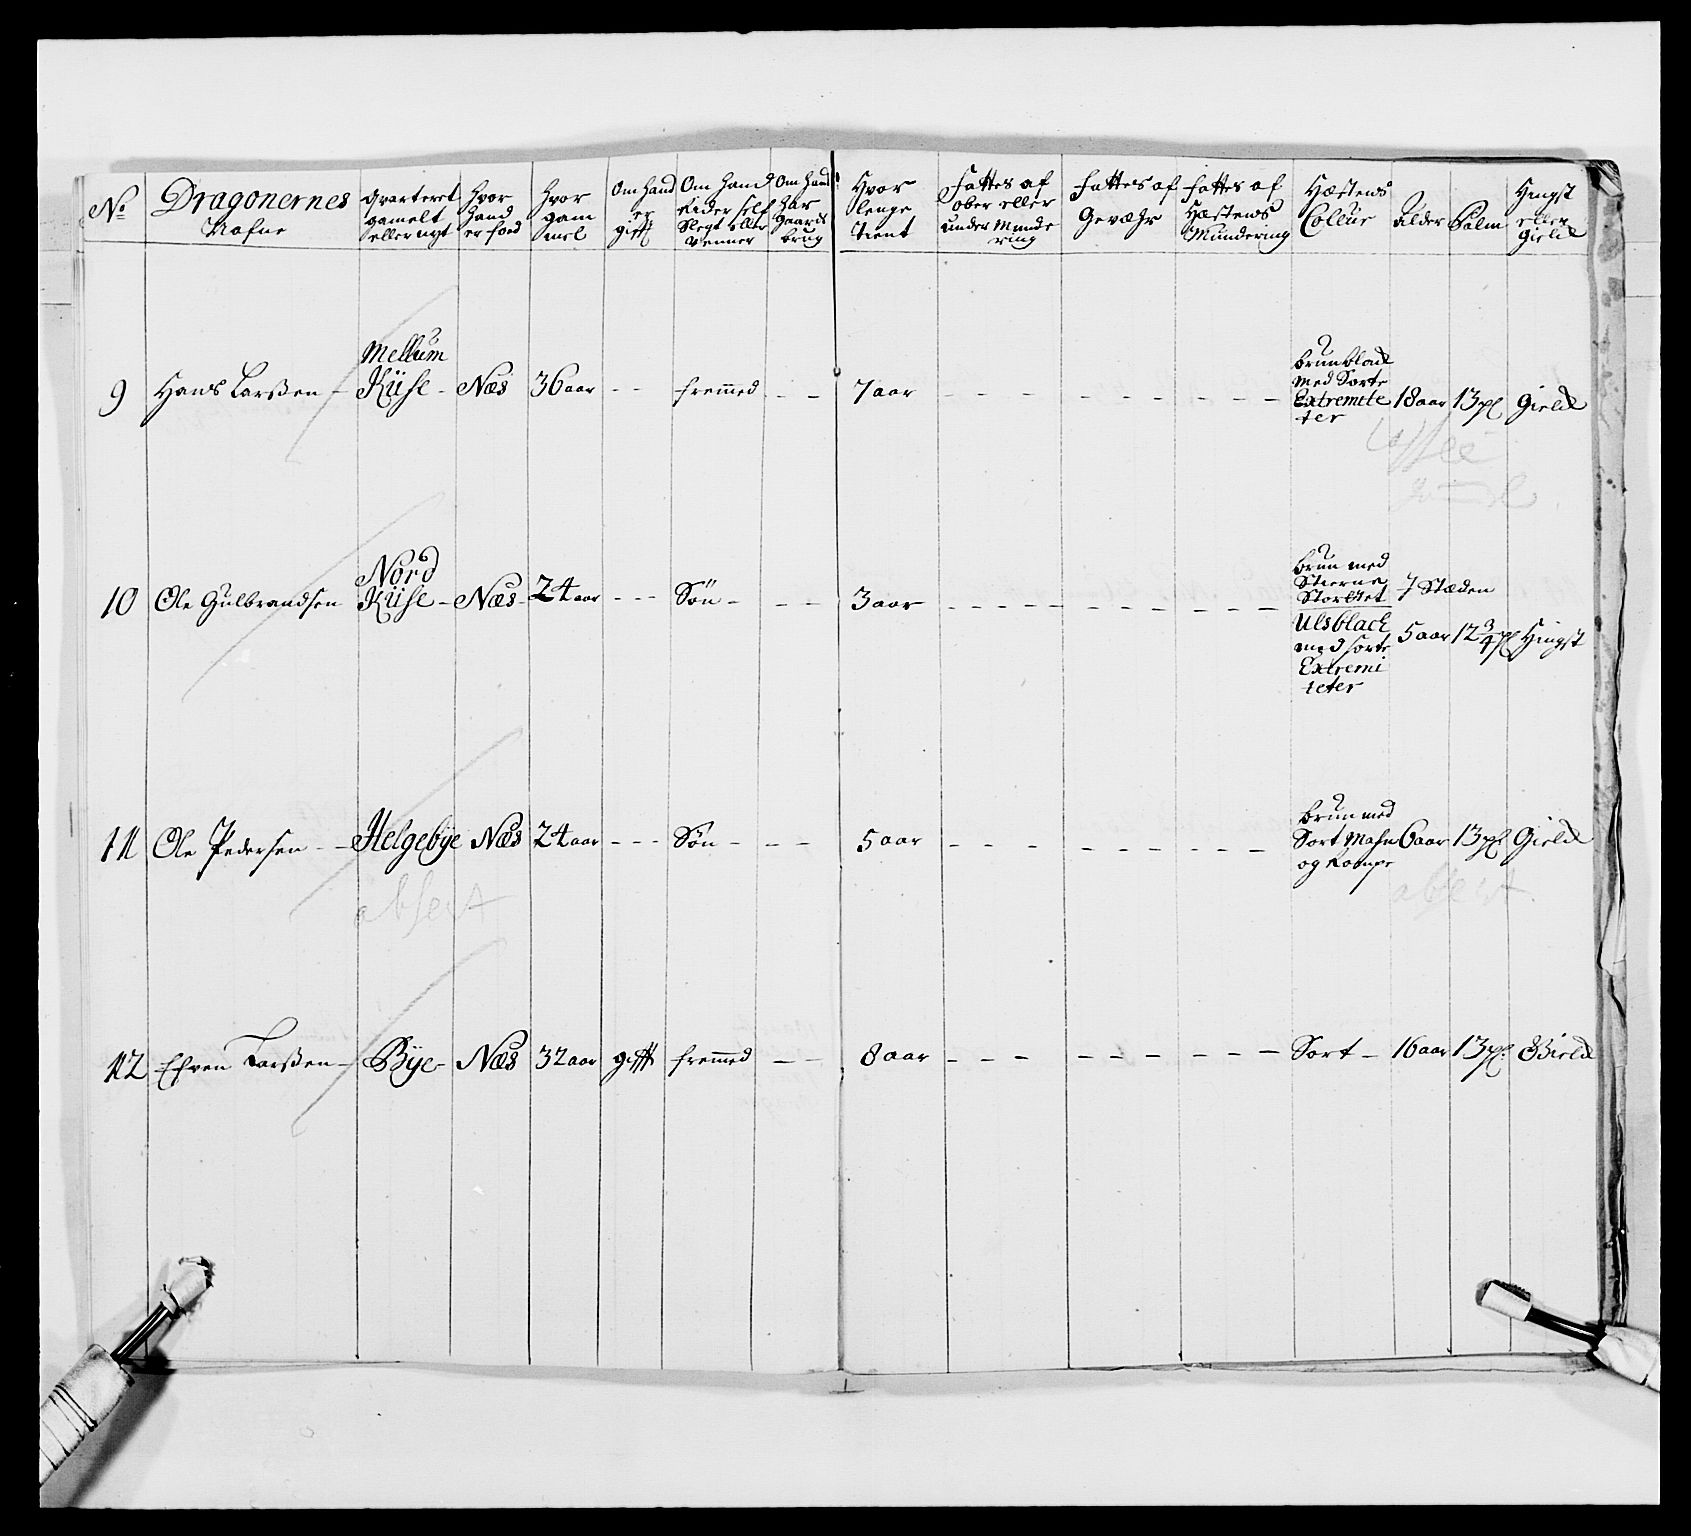 No Dragonernes Nafne | Qvarteret gamelt eller nyt | Hvor hand er föed | Hvor gam mel | Om hand er gifft | Om hand Rider self Slegt eller Venner | Om hand har gaards brug | Hvor lenge tient | Fattes af ober eller under Munde ring | Fattes af Gevæhr | Fattes af Hæstens Mundering | Hæstens Colleur | Alder | Palm | Hingst eller Gield
9 Hans Larssen – Mellum Küse – Næs 36 aar – – fremmed – – 7 aar – – – – – – – – – brunblack med Sorte Extremite ter 18 aar 13 pl Gield
10 Ole Gulbrandsen Nord Küse – Næs – 24 aar – – – Søn – – – 3 aar – – – – – – – – – brun med Stierne Stortet 7 Stæden
Ulsblack med sorte Extremi teter 5 aar 12 3/4 pl Hingst
11 Ole Pedersen – – Helgebye Næs 24 aar – – – Søn – – – 5 aar – – – – – – – – – brun med Sort Mahn og Rompe 6 aar 13 pl Gield
absent absent
12 Efven Larssen – Bye – Næs 32 aar gifft fremmed – – 8 aar – – – – – – – – – Sort – 16 aar 13 pl. Gield